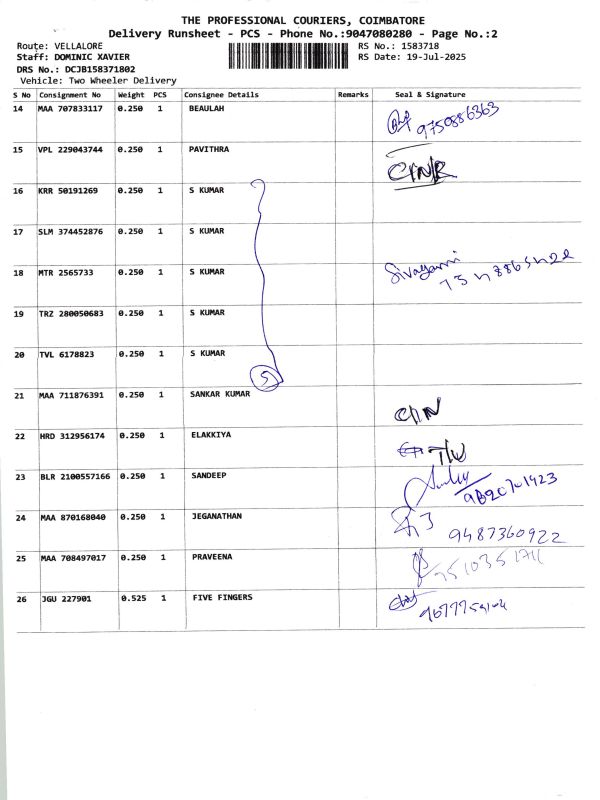 THE PROFESSIONAL COURIERS, COIMBATORE
Delivery Runsheet - PCS - Phone No.:9047080280 - Page No.:2
Route: VELLALORE RS No.: 1583718
Staff: DOMINIC XAVIER RS Date: 19-Jul-2025
DRS No.: DCJB158371802
Vehicle: Two Wheeler Delivery
S No Consignment No Weight PCS Consignee Details Remarks Seal & Signature
14 MAA 707833117 0.250 1 BEAULAH 9750886363
15 VPL 229043744 0.250 1 PAVITHRA
16 KRR 50191269 0.250 1 S KUMAR
17 SLM 374452876 0.250 1 S KUMAR
18 MTR 2565733 0.250 1 S KUMAR Sivagami
19 TRZ 280050683 0.250 1 S KUMAR
20 TVL 6178823 0.250 1 S KUMAR
5
21 MAA 711876391 0.250 1 SANKAR KUMAR
22 HRD 312956174 0.250 1 ELAKKIYA
23 BLR 2100557166 0.250 1 SANDEEP
24 MAA 870168040 0.250 1 JEGANATHAN 9487360922
25 MAA 708497017 0.250 1 PRAVEENA
26 JGU 227901 0.525 1 FIVE FINGERS